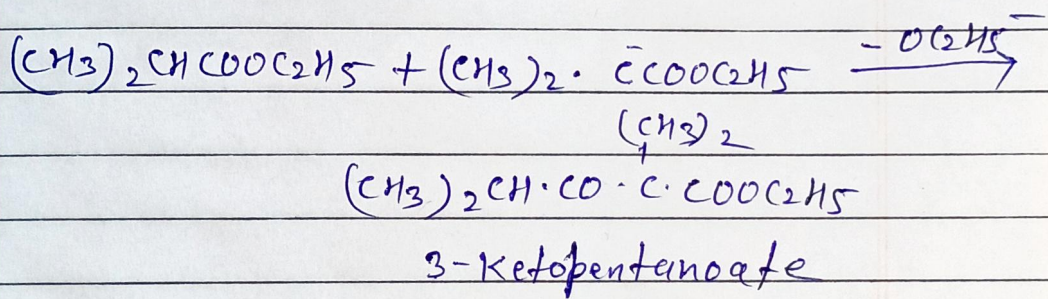 (CH3)2CHCOOC2H5 + (CH3)2. C̄COOC2H5 – OC2H5⁻ →
(CH3)2
(CH3)2CH.CO-C.COOC2H5
3-Ketopentanoate